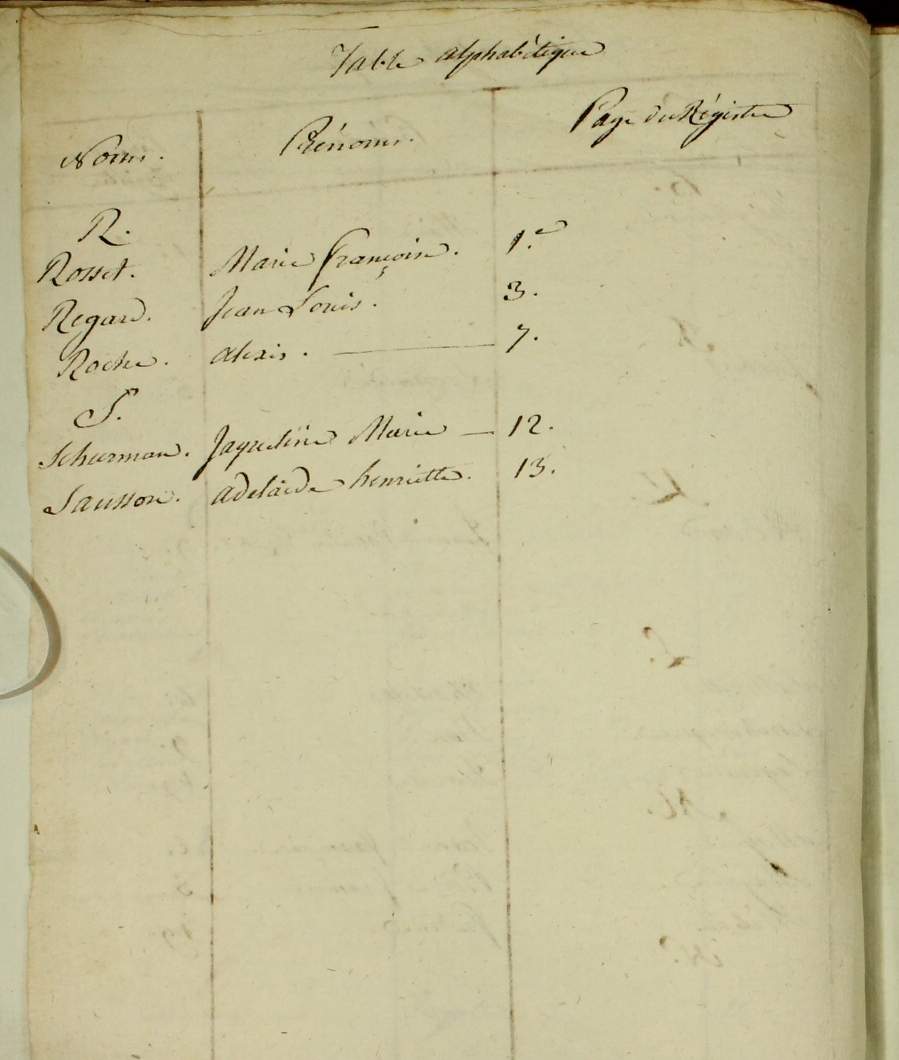 Table alphabétique
Noms. Prénoms. Page du Régistre
R.
Rosset. Marie françoise. 1.re
Regard. Jean Louis. 3.
Roche. alexis. — 7.
S.
Schurman. Jaqueline Marie — 12.
Sausson. adelaide henriette. 13.